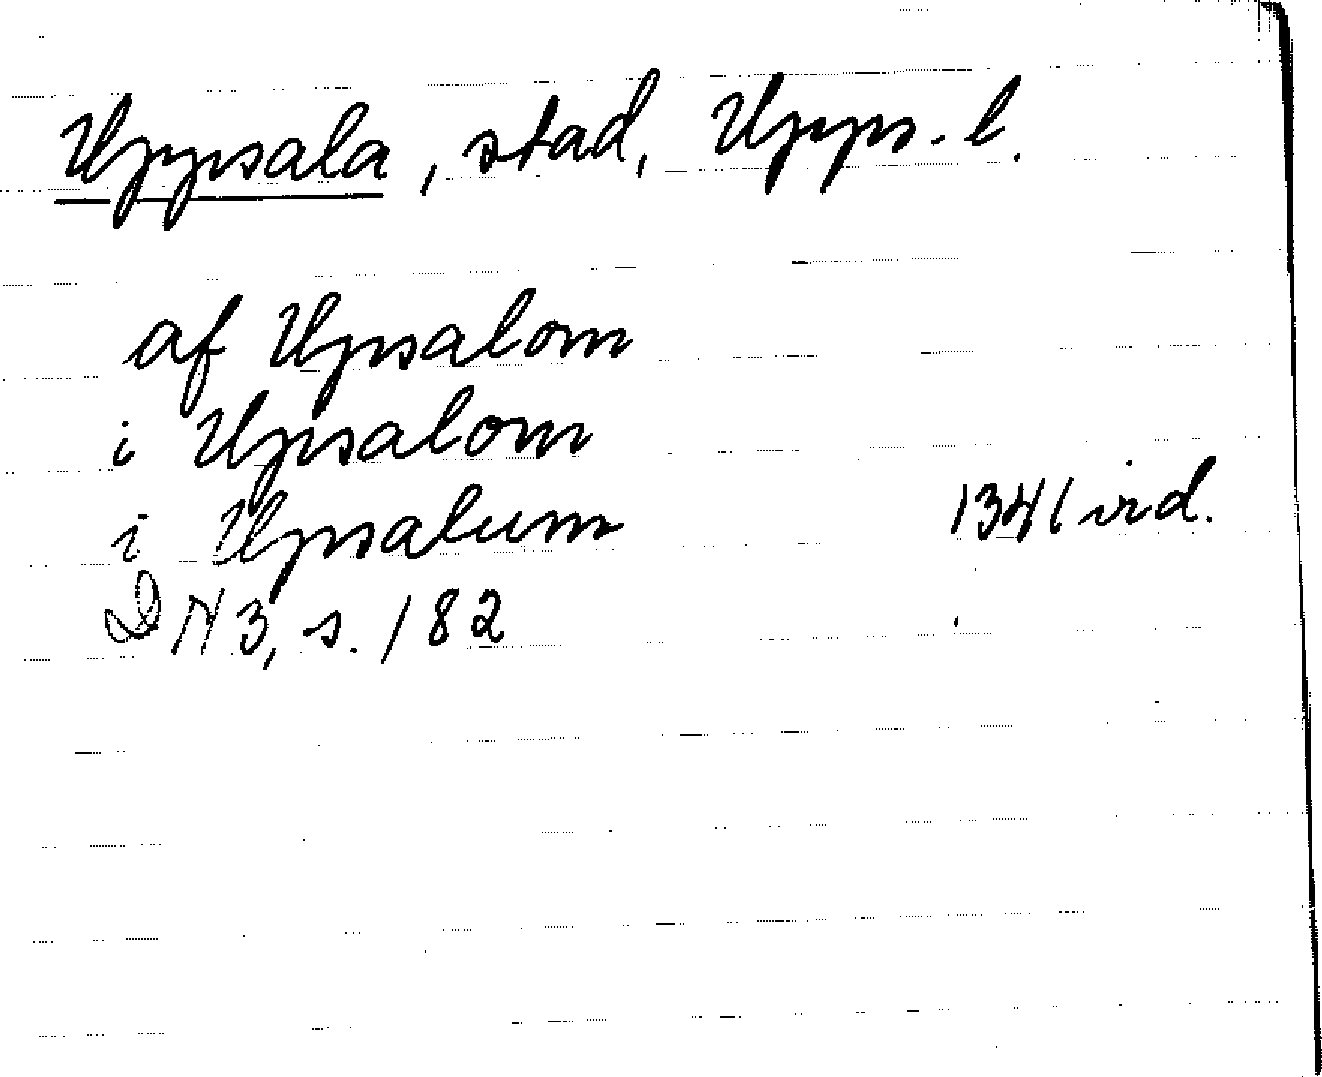 Uppsala, stad, Upps. l.
af Upsalom
i Upsalom
i Upsalum 1341 vid.
DN 3, s. 182